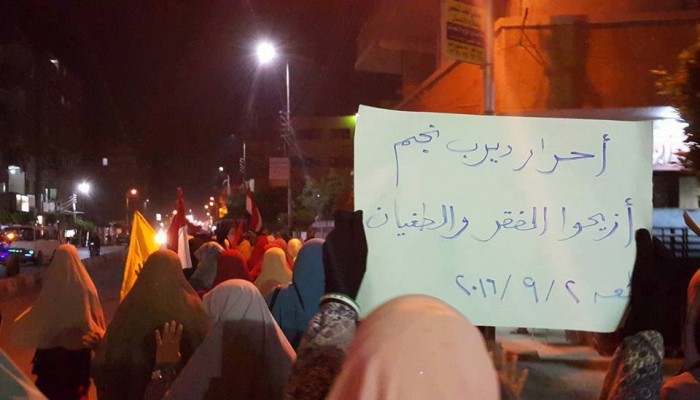 أحرار ديرب نجم
أزيحوا المفقر والطغيان
٢ / ٩ / ٢٠١٦